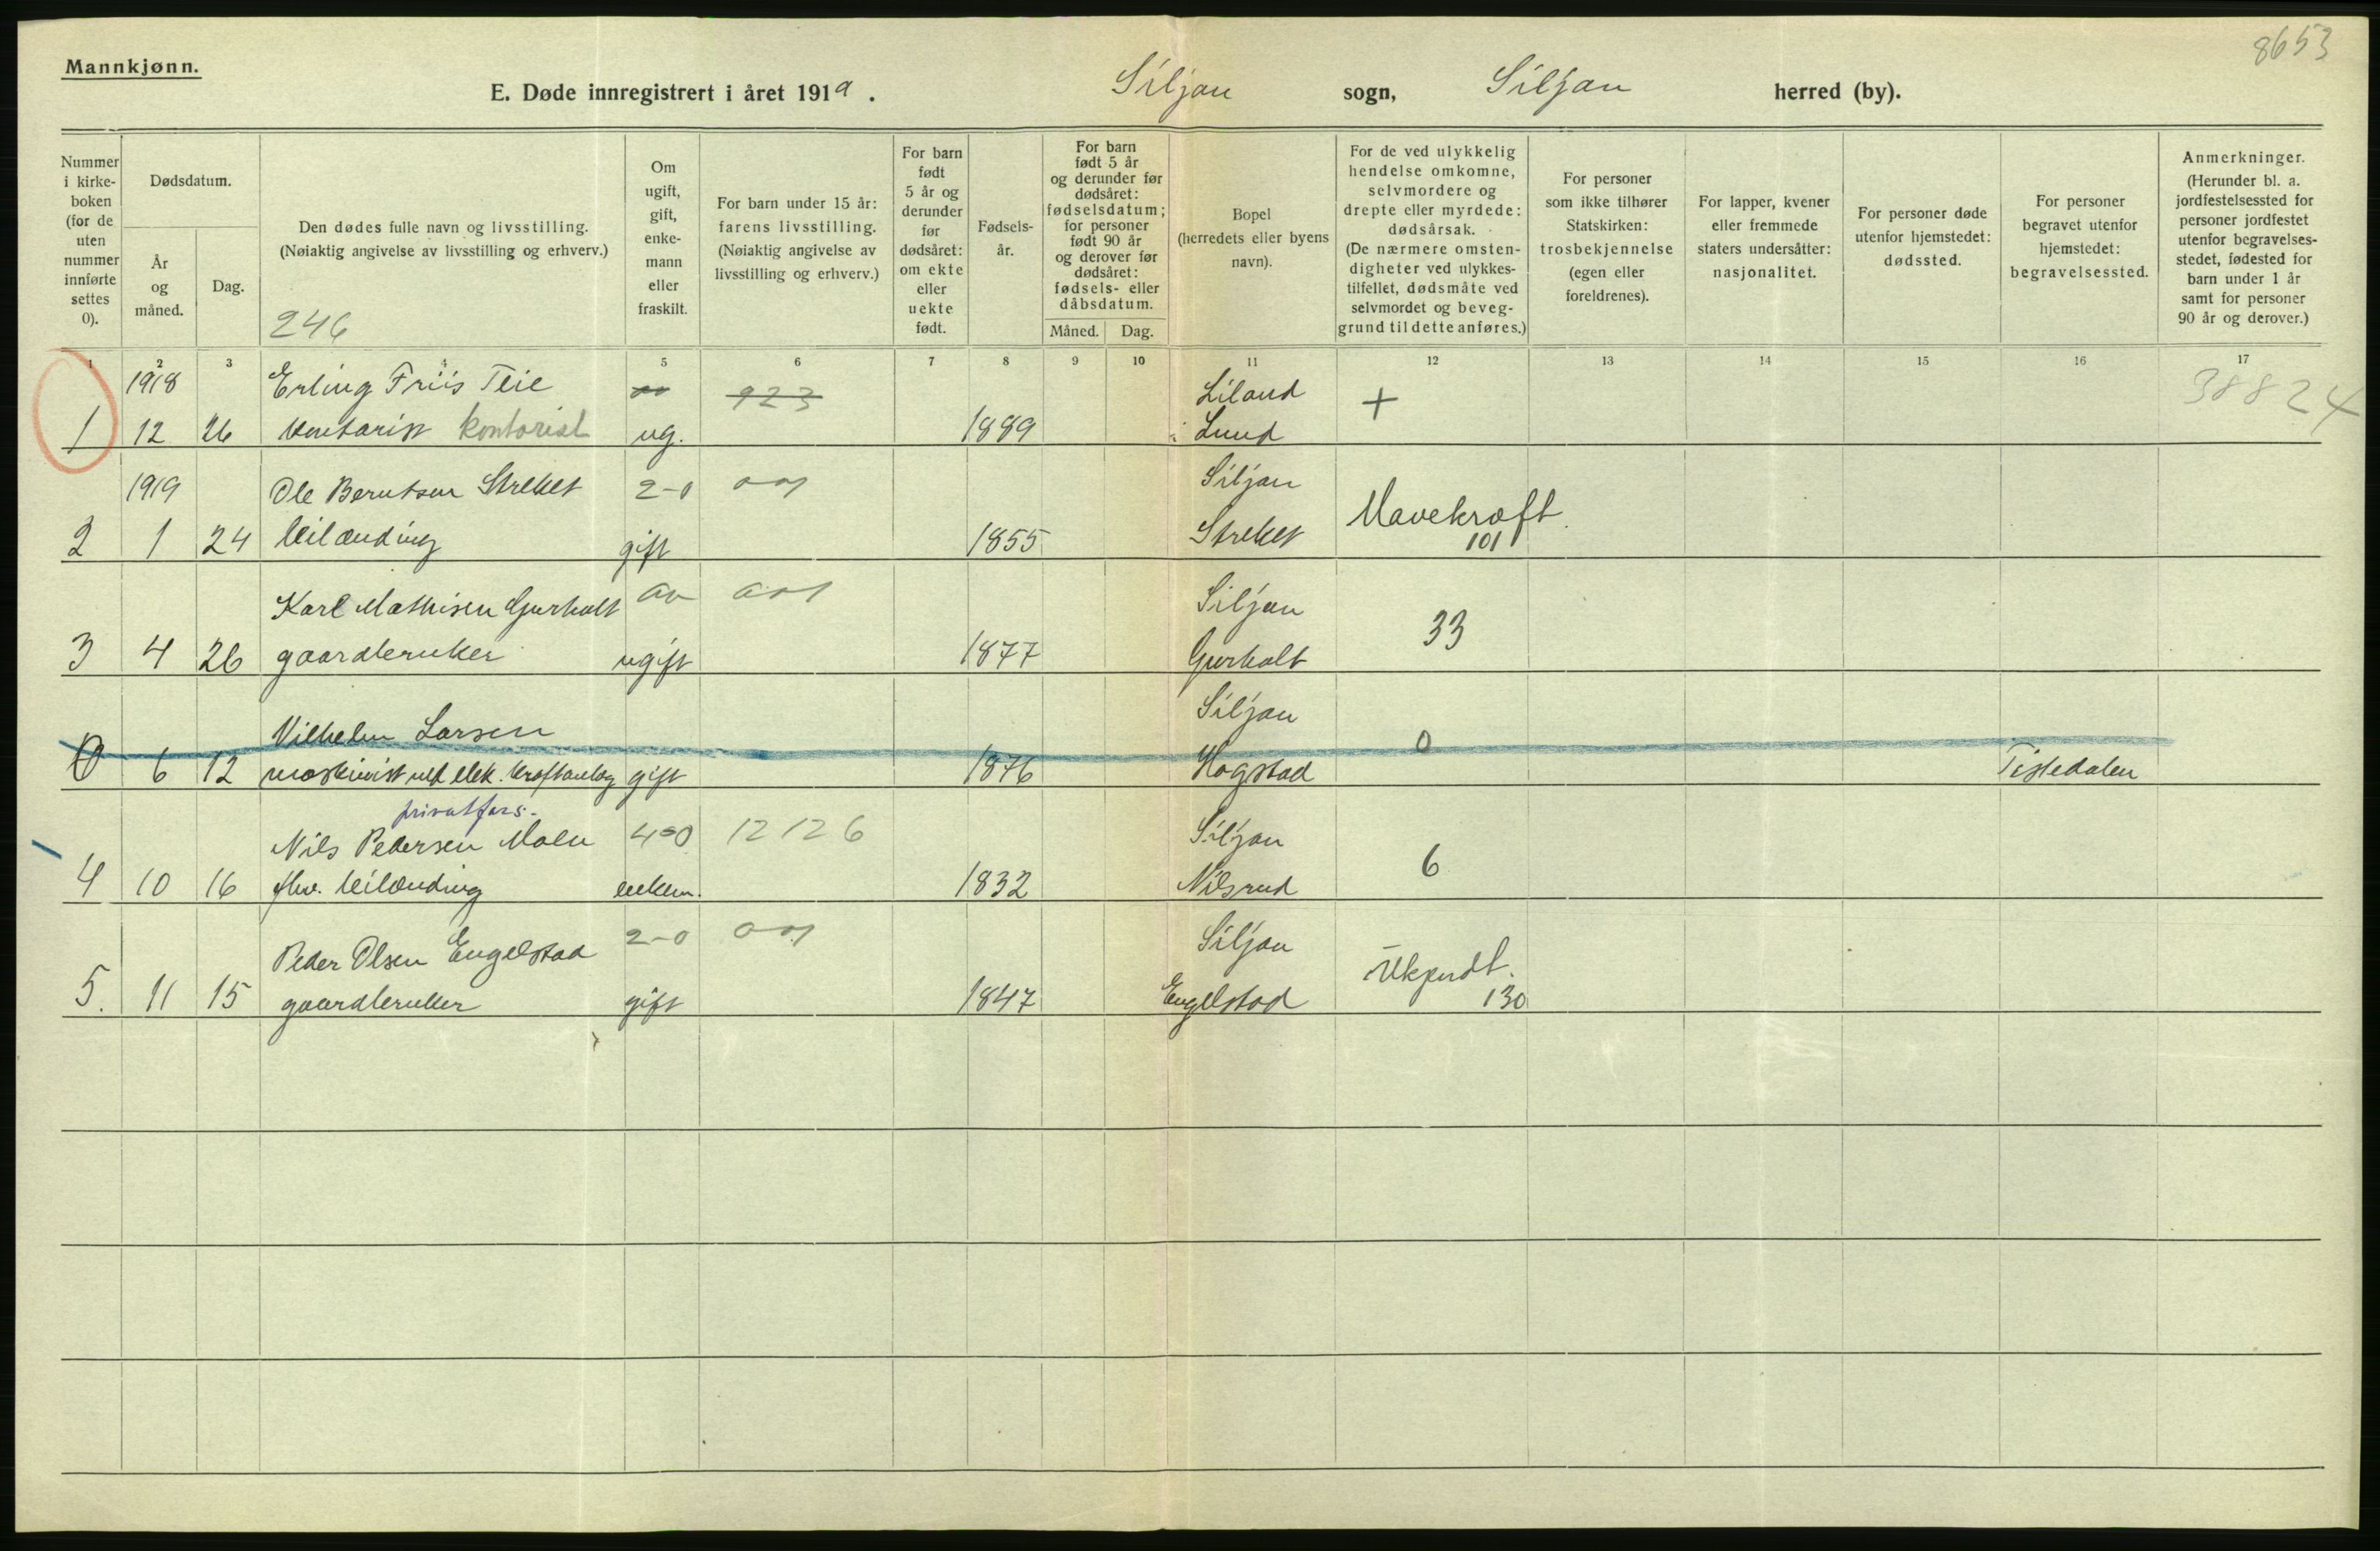 8653
Mannkjønn.
E. Døde innregistrert i året 1919. Siljan sogn, Siljan herred (by).
Nummer i kirke- boken (for de uten nummer innførte settes 0).
Dødsdatum.
År og måned.
Dag.
Den dødes fulle navn og livsstilling.
(Nøiaktig angivelse av livsstilling og erhverv.)
246
Om ugift, gift, enke- mann eller fraskilt.
For barn under 15 år: farens livsstilling. (Nøiaktig angivelse av livsstilling og erhverv.)
For barn født 5 år og derunder før dødsåret: om ekte eller uekte født.
Fødsels- år.
For barn født 5 år og derunder før dødsåret: fødselsdatum; for personer født 90 år og derover før dødsåret: fødsels- eller dåbsdatum.
Måned. Dag.
Bopel (herredets eller byens navn).
For de ved ulykkelig hendelse omkomne, selvmordere og drepte eller myrdede: dødsårsak. (De nærmere omsten- digheter ved ulykkes- tilfellet, dødsmåte ved selvmordet og beveg- grund til dette anføres.)
For personer som ikke tilhører Statskirken: trosbekjennelse (egen eller foreldrenes).
For lapper, kvener eller fremmede staters undersåtter: nasjonalitet.
For personer døde utenfor hjemstedet: dødssted.
For personer begravet utenfor hjemstedet: begravelsessted.
Anmerkninger. (Herunder bl. a. jordfestelsessted for personer jordfestet utenfor begravelses- stedet, fødested for barn under 1 år samt for personer 90 år og derover.)
1 2 3 4 5 6 7 8 9 10 11 12 13 14 15 16 17
1918 Erling Friis Teie 923 Liland + 38824
1 12 26 kontorist kontorist ug. 1889 i Lund
1919 Ole Berntsen Streket 2-0 Siljan
2 1 24 leilænding gift 1855 Streket Mavekræft. 101
Karl Mathisen Gurholt Siljan
3 4 26 gaardbruker ugift 1877 Gurholt 33
Vilhelm Larsen Siljan
0 6 12 maskinist ved elek. kraftanlæg gift 1876 Hogstad 0 Tistedalen
privatfors.
Nils Pedersen Moen 4-0 12 12 6 Siljan
4 10 16 fhv. leilænding enkem. 1832 Nilsrud 6
Peder Olsen Engelstad 2-0 Siljan
5. 11 15 gaardbruker gift 1847 Engelstad Ukjendt. 130